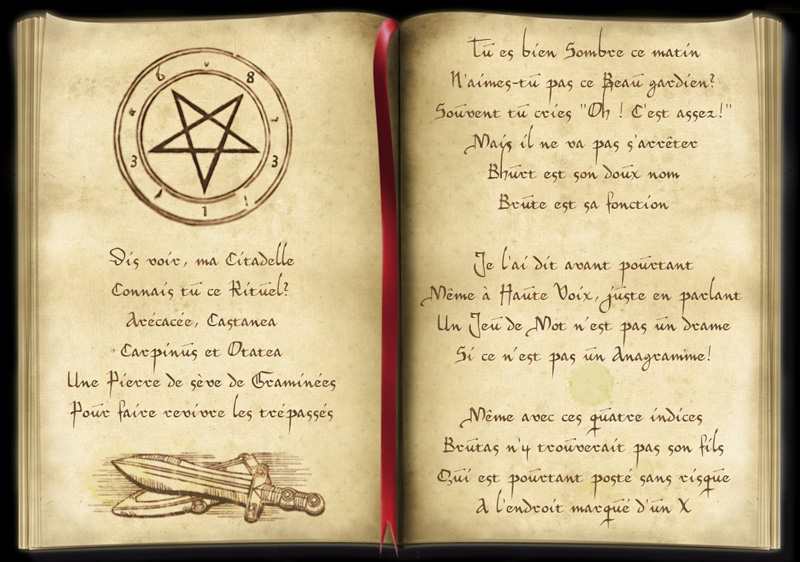 6 8
3 3
1
Dis voir, ma Citadelle
Connais tu ce Rituel?
Arécacée, Castanea
Carpinus et Otatea
Une Pierre de sève de Graminées
Pour faire revivre les trépassés
Tu es bien Sombre ce matin
N'aimes-tu pas ce Beau gardien?
Souvent tu cries "Oh ! C'est assez!"
Mais il ne va pas s'arrêter
Bhurt est son doux nom
Brute est sa fonction
Je l'ai dit avant pourtant
Même à Haute Voix, juste en parlant
Un Jeu de Mot n'est pas un drame
Si ce n'est pas un Anagramme!
Même avec ces quatre indices
Brutas n'y trouverait pas son fils
Qui est pourtant posté sans risque
A l'endroit marqué d'un X